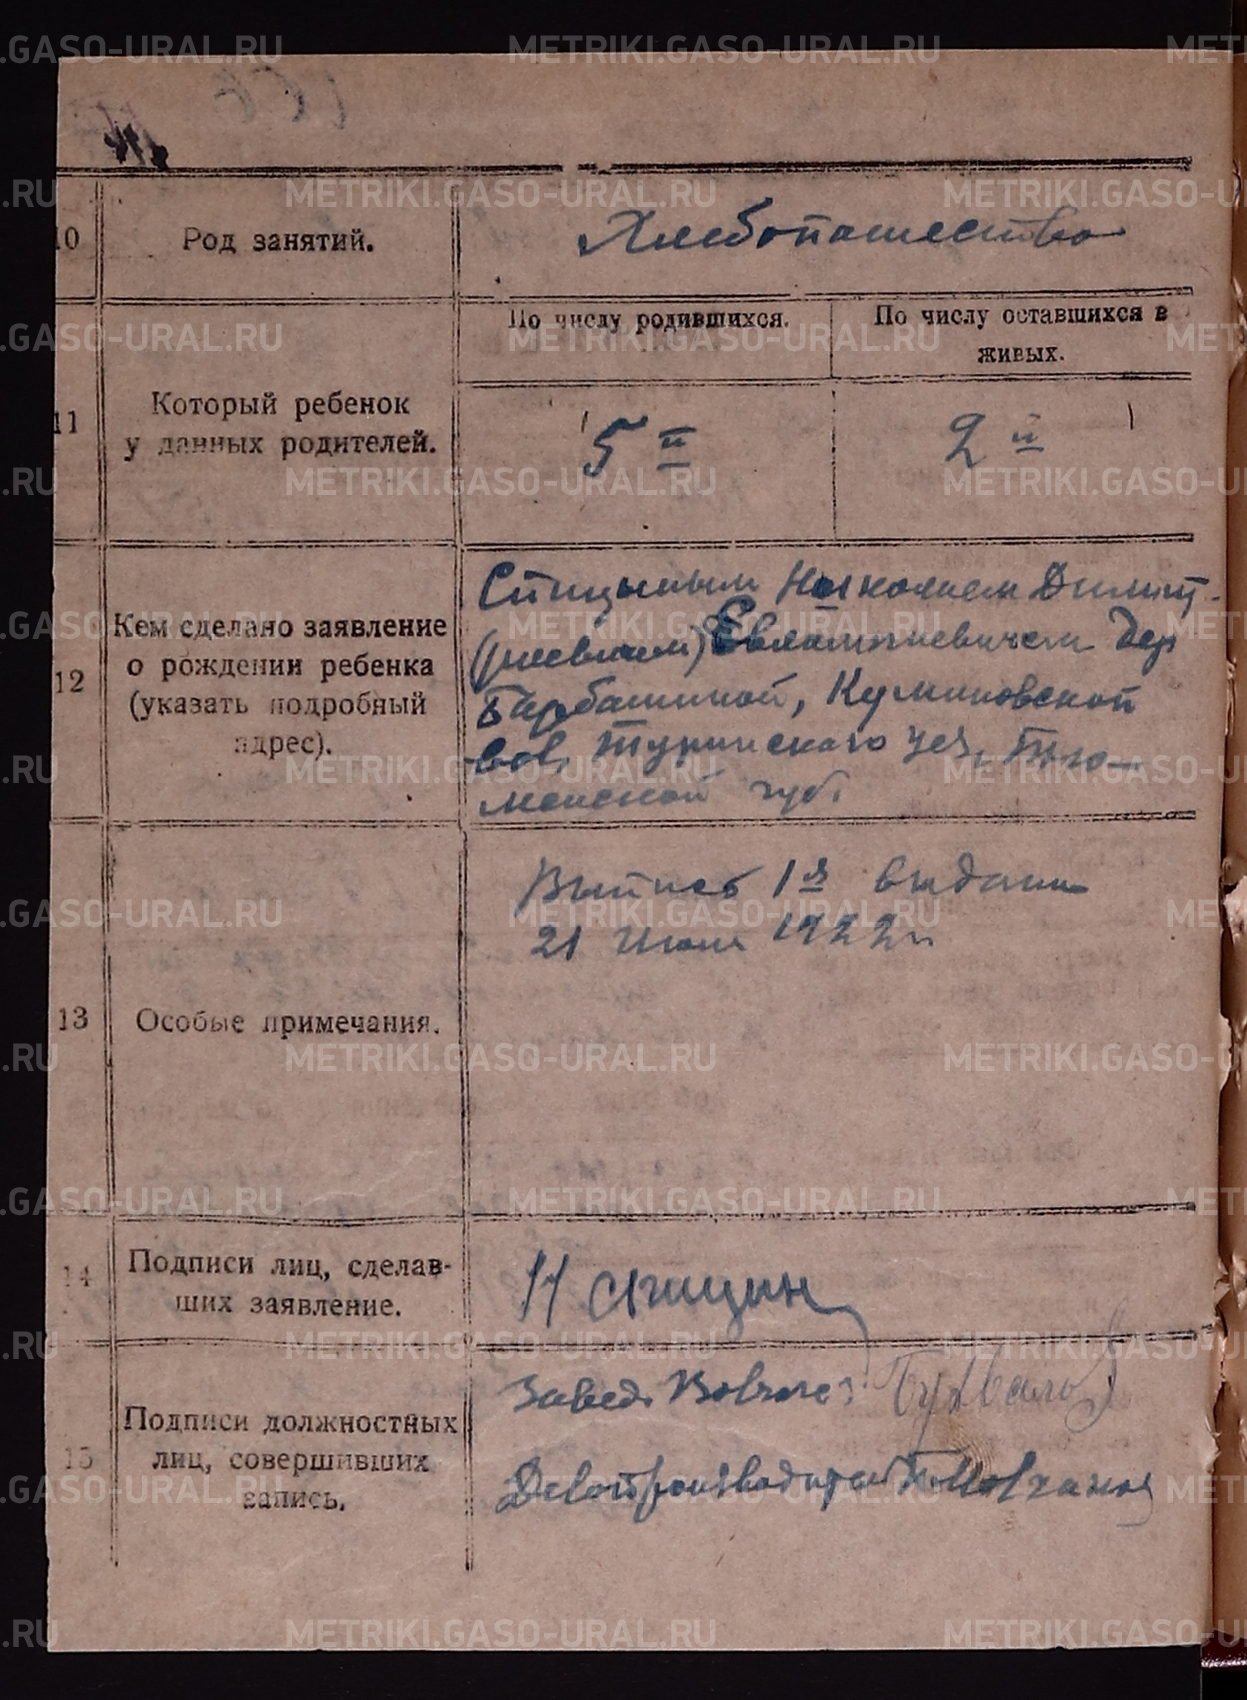 10
Род занятий.
Хлебопашество
11
Который ребенок
у данных родителей.
По числу родившихся.
По числу оставшихся в
живых.
5й
2й
12
Кем сделано заявление
о рождении ребенка
(указать подробный
адрес).
Спицыным Николаем Димит-
(риевичем) Евлампиевичем дер
Барбашиной, Куминовской
вол, Туринскаго уез, Тюо-
менской губ.
13
Особые примечания.
Выпись 1я выдана
21 Июля 1922 г.
14
Подписи лиц, сделав-
ших заявление.
Н Спицын
15
Подписи должностных
лиц, совершивших
запись.
Завед.
Делопроизводитель
METRIKI.GASO-URAL.RU